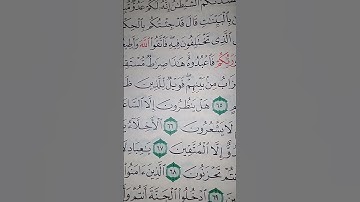 ٱلشَّيْطَٰنُ إِنَّهُۥ لَكُمْ عَدُوٌّ
بِٱلْبَيِّنَٰتِ قَالَ قَدْ جِئْتُكُم
ٱلَّذِى تَخْتَلِفُونَ فِيهِ فَٱتَّقُوا۟ ٱللَّهَ
فَٱعْبُدُوهُ هَٰذَا صِرَٰطٌ
مِنۢ بَيْنِهِمْ فَوَيْلٌ لِّلَّذِينَ
٦٥ هَلْ يَنظُرُونَ إِلَّا
لَا يَشْعُرُونَ ٦٦ ٱلْأَخِلَّآءُ
إِلَّا ٱلْمُتَّقِينَ ٦٧ يَٰعِبَادِ
تَحْزَنُونَ ٦٨ ٱلَّذِينَ ءَامَنُوا۟
٦٩ ٱدْخُلُوا۟ ٱلْجَنَّةَ أَنتُمْ